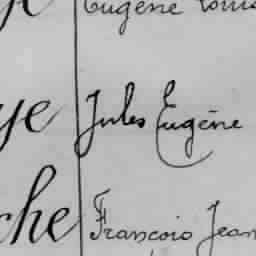 Eugène Louis
ye Jules Eugène
che François Jean